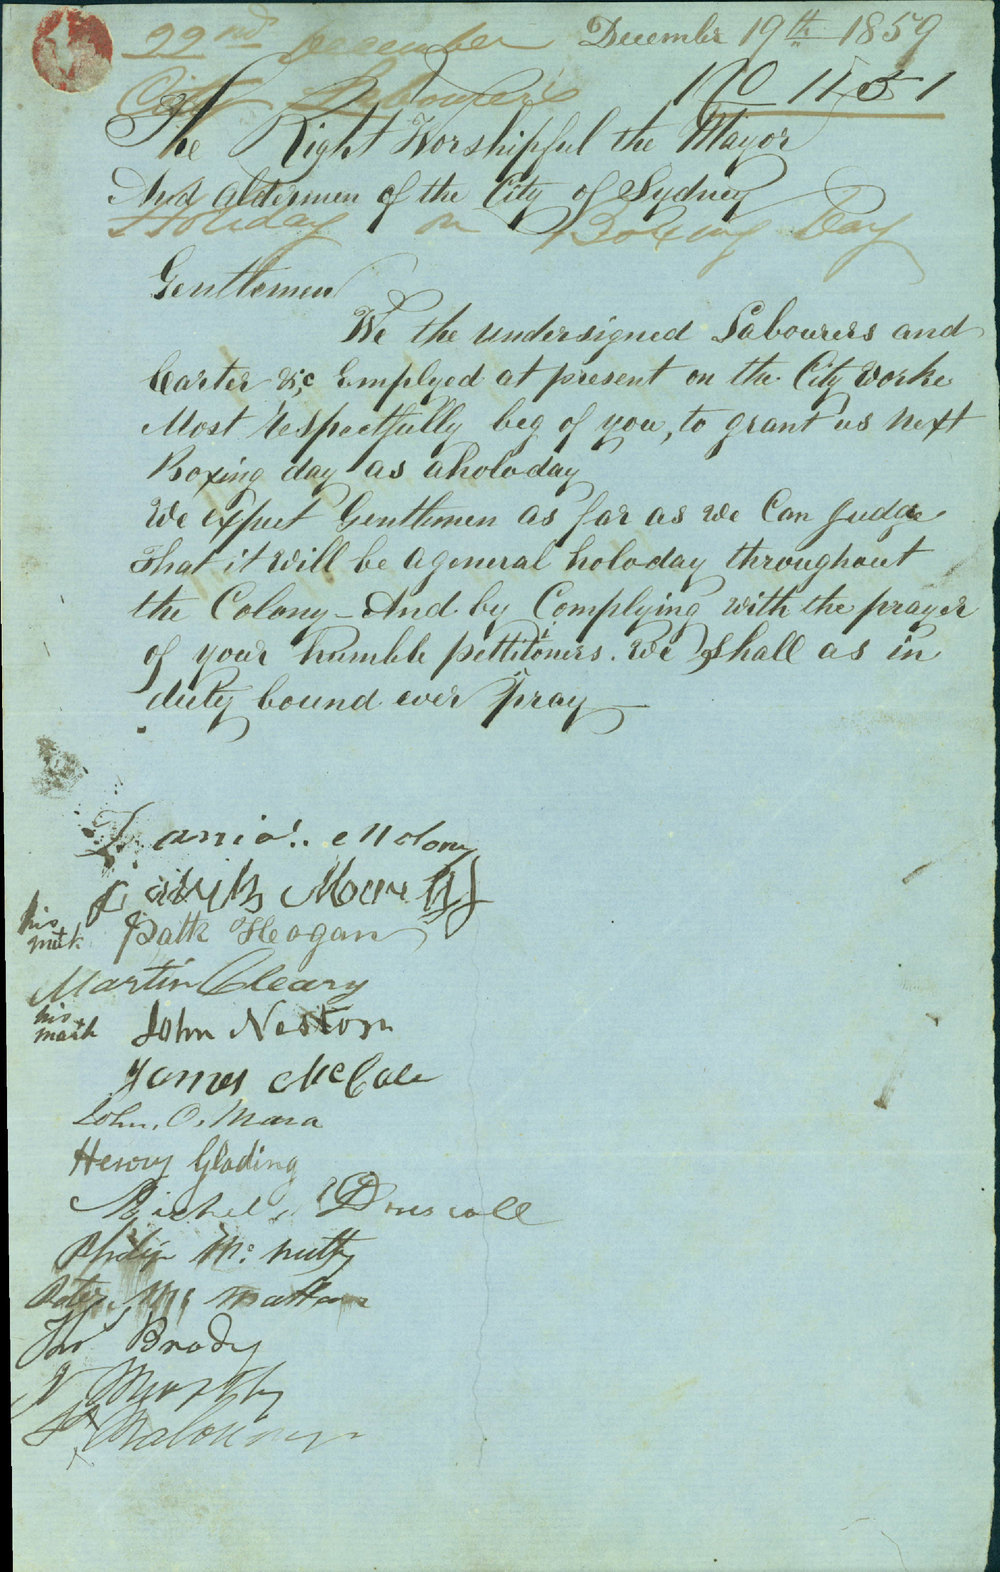 22nd December
December 19th 1859
City Labourers
No 1151
The Right Worshipful the Mayor
And Aldermen of the City of Sydney
Holiday on Boxing Day
Gentlemen
We the undersigned Labourers and
Carter &c Employed at present on the City Works
Most Respectfully beg of you, to grant us next
Boxing day as aholoday
We expect Gentlemen as far as we Can Judge
That it will be ageneral holoday throughout
the Colony - And by Complying with the prayer
of your humble pettitoners. We Shall as in
duty bound ever pray
Daniel Molony
Patrick
his mark Patk Heagan
Martin Cleary
his mark John Neston
James McCale
John. O. Mara
Henry Glading
Michel Driscoll
Philip Mc nulty
Peter Mc
Thos Brady
Murphy